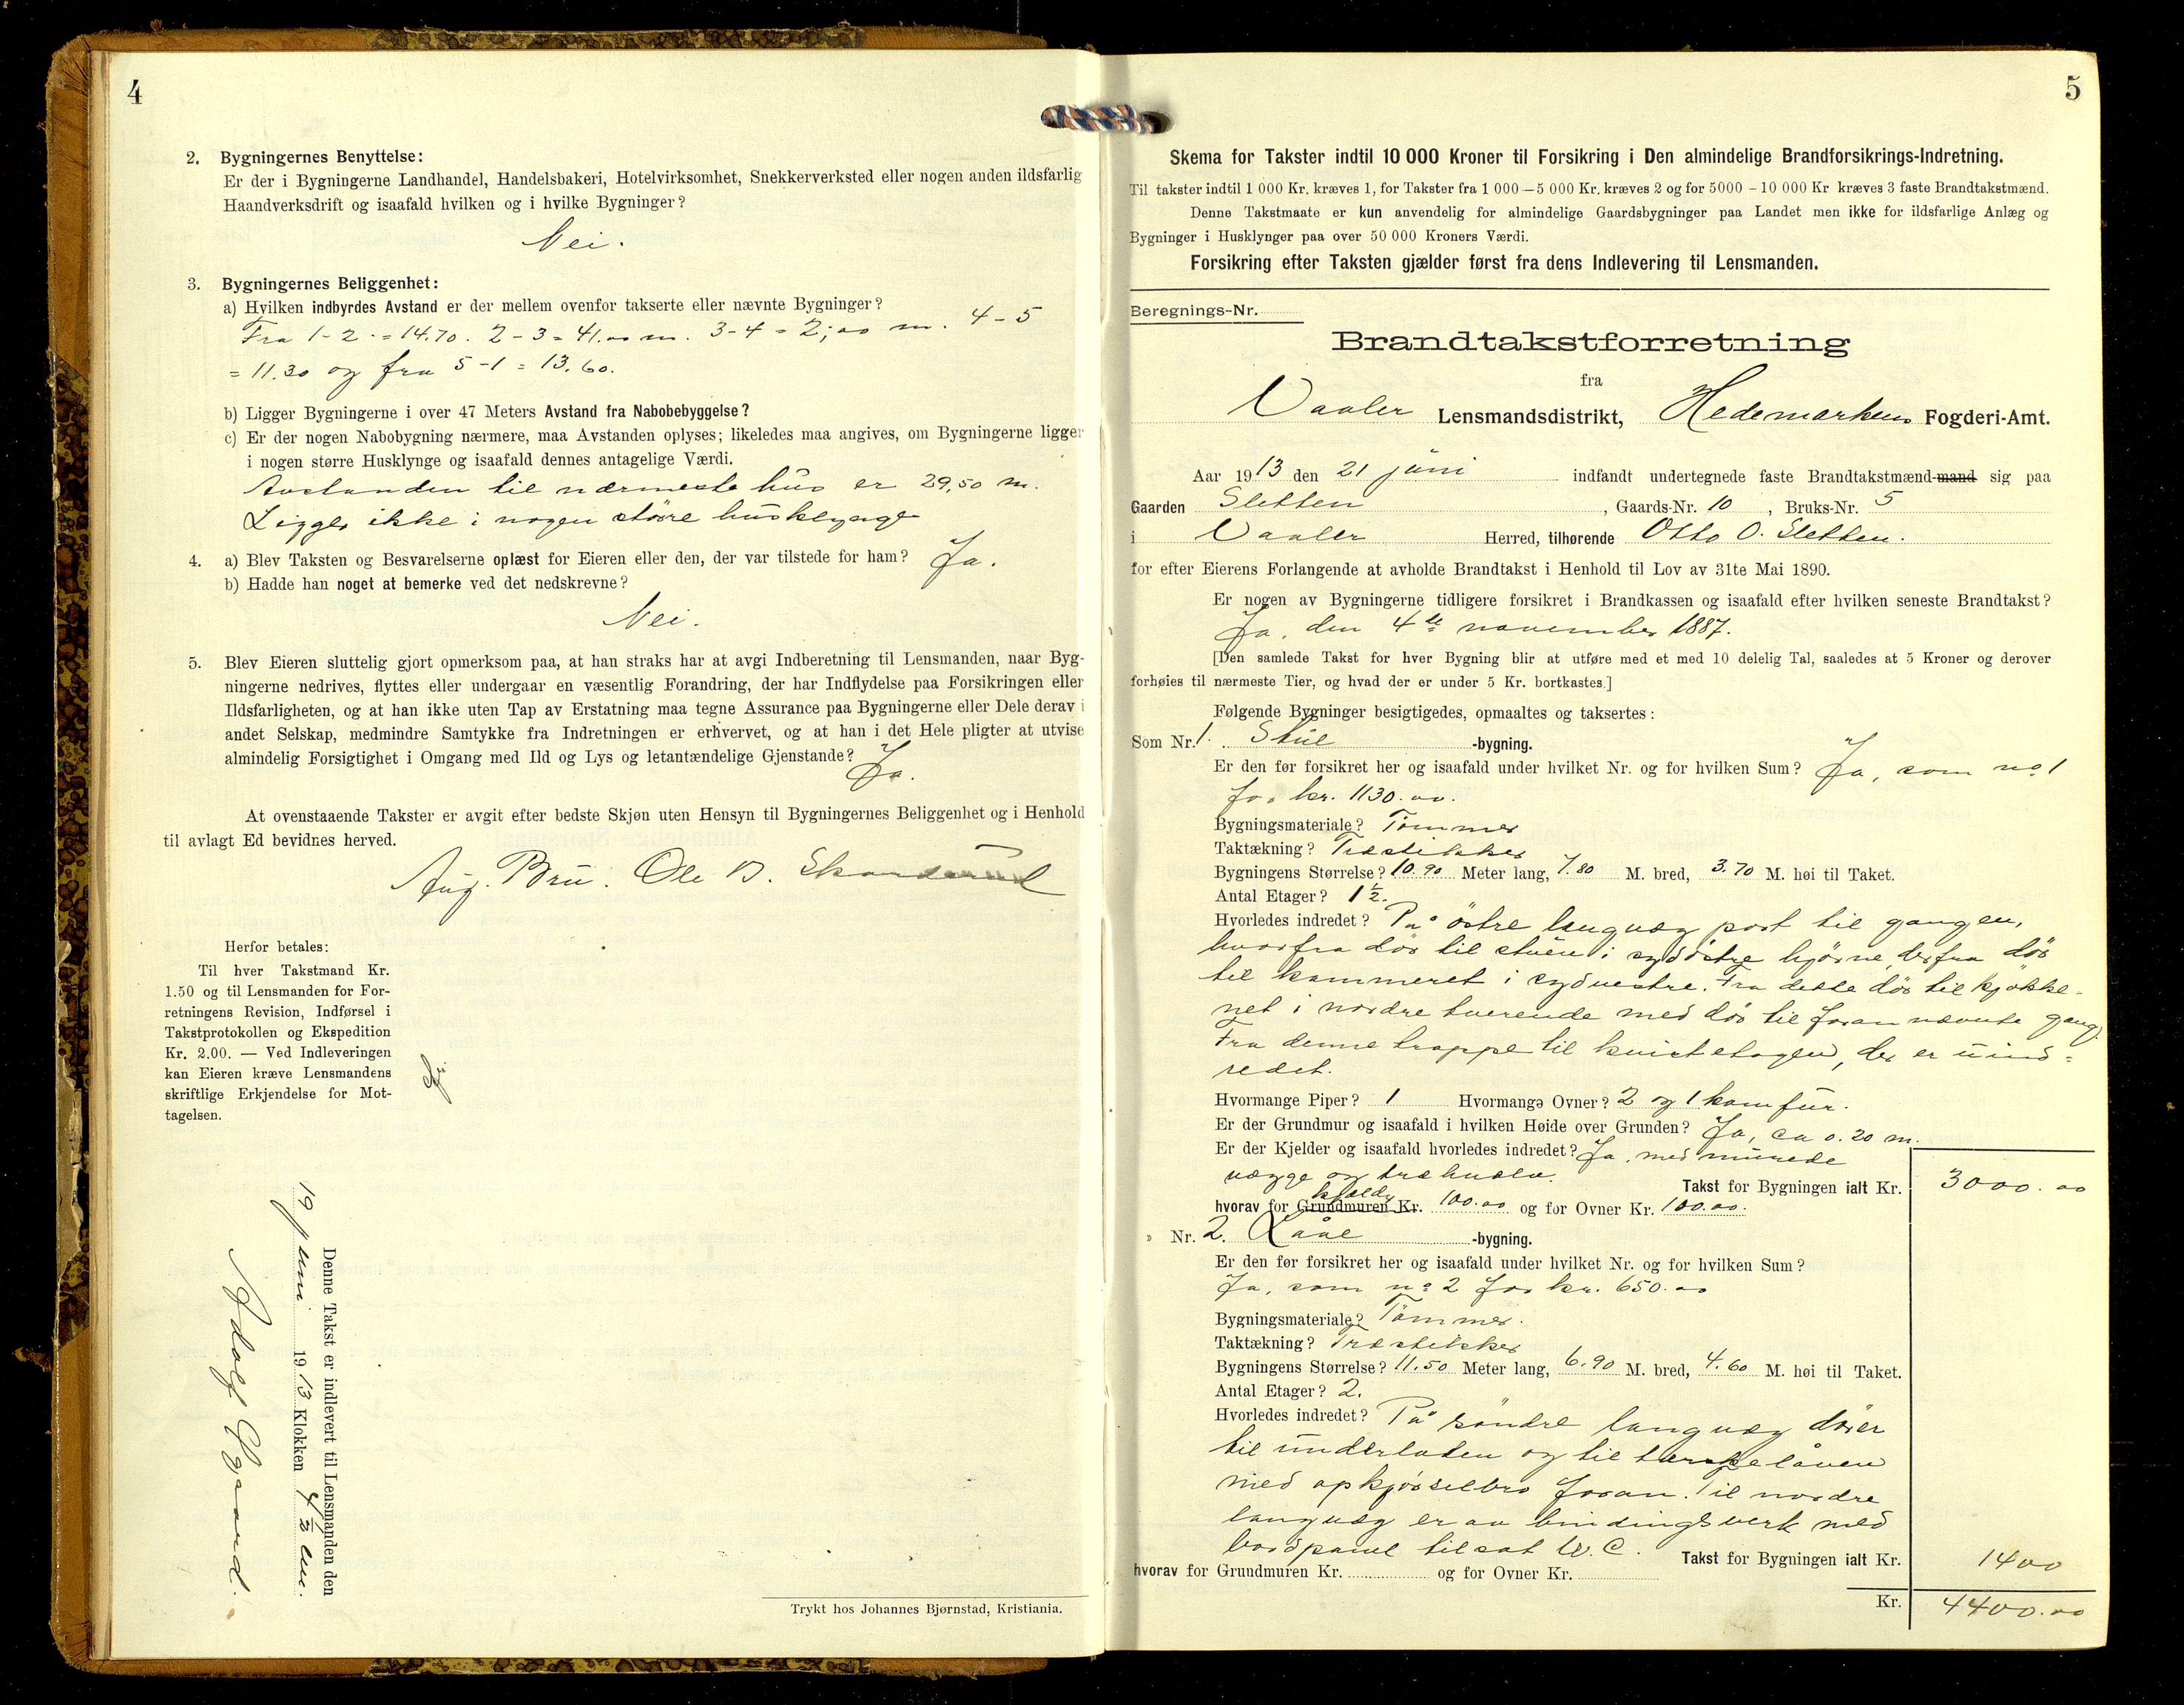 4
2. Bygningernes Benyttelse:
Er der i Bygningerne Landhandel, Handelsbakeri, Hotelvirksomhet, Snekkerverksted eller nogen anden ildsfarlig
Haandverksdrift og isaafald hvilken og i hvilke Bygninger?
Nei.
3. Bygningernes Beliggenhet:
a) Hvilken indbyrdes Avstand er der mellem ovenfor takserte eller nævnte Bygninger?
Fra 1-2 = 14.70. 2-3 = 41.00 m. 3-4 = 2,00 m. 4-5
= 11.30 og fra 5-1 = 13.60.
b) Ligger Bygningerne i over 47 Meters Avstand fra Nabobebyggelse?
c) Er der nogen Nabobygning nærmere, maa Avstanden oplyses; likeledes maa angives, om Bygningerne ligger
i nogen større Husklynge og isaafald dennes antagelige Værdi.
Avstanden til nærmeste hus er 29,50 m.
Ligger ikke i nogen större husklynge
4. a) Blev Taksten og Besvarelserne oplæst for Eieren eller den, der var tilstede for ham? Ja.
b) Hadde han noget at bemerke ved det nedskrevne?
Nei.
5. Blev Eieren sluttelig gjort opmerksom paa, at han straks har at avgi Indberetning til Lensmanden, naar Byg-
ningerne nedrives, flyttes eller undergaar en væsentlig Forandring, der har Indflydelse paa Forsikringen eller
Ildsfarligheten, og at han ikke uten Tap av Erstatning maa tegne Assurance paa Bygningerne eller Dele derav i
andet Selskap, medmindre Samtykke fra Indretningen er erhvervet, og at han i det Hele pligter at utvise
almindelig Forsigtighet i Omgang med Ild og Lys og letantændelige Gjenstande? Ja.
At ovenstaaende Takster er avgit efter bedste Skjøn uten Hensyn til Bygningernes Beliggenhet og i Henhold
til avlagt Ed bevidnes herved.
Aug. Bru. Ole B. Skarderud
Herfor betales:
Til hver Takstmand Kr.
1.50 og til Lensmanden for For-
retningens Revision, Indførsel i
Takstprotokollen og Ekspedition
Kr. 2.00. — Ved Indleveringen
kan Eieren kræve Lensmandens
skriftlige Erkjendelse for Mot-
tagelsen.
Denne Takst er indlevert til Lensmanden den
19 juni 1913 Klokken 4 1/2 em.
Adolf Ygaard.
Trykt hos Johannes Bjørnstad, Kristiania.
5
Skema for Takster indtil 10 000 Kroner til Forsikring i Den almindelige Brandforsikrings-Indretning.
Til takster indtil 1 000 Kr. kræves 1, for Takster fra 1 000—5 000 Kr. kræves 2 og for 5000 - 10 000 Kr kræves 3 faste Brandtakstmænd.
Denne Takstmaate er kun anvendelig for almindelige Gaardsbygninger paa Landet men ikke for ildsfarlige Anlæg og
Bygninger i Husklynger paa over 50 000 Kroners Værdi.
Forsikring efter Taksten gjælder først fra dens Indlevering til Lensmanden.
Beregnings-Nr.
Brandtakstforretning
fra
Vaaler Lensmandsdistrikt, Hedemarkens Fogderi-Amt.
Aar 1913 den 21 juni indfandt undertegnede faste Brandtakstmænd-mand sig paa
Gaarden Sletten, Gaards-Nr. 10, Bruks-Nr. 5
i Vaaler Herred, tilhørende Otto O. Sletten.
for efter Eierens Forlangende at avholde Brandtakst i Henhold til Lov av 31te Mai 1890.
Er nogen av Bygningerne tidligere forsikret i Brandkassen og isaafald efter hvilken seneste Brandtakst?
Ja, den 4de november 1887.
[Den samlede Takst for hver Bygning blir at utføre med et med 10 delelig Tal, saaledes at 5 Kroner og derover
forhøies til nærmeste Tier, og hvad der er under 5 Kr. bortkastes.]
Følgende Bygninger besigtigedes, opmaaltes og taksertes:
Som Nr. 1. Stue -bygning.
Er den før forsikret her og isaafald under hvilket Nr. og for hvilken Sum? Ja, som no 1
for kr. 1130.00.
Bygningsmateriale? Tömmer
Taktækning? Træstikker
Bygningens Størrelse? 10.90 Meter lang, 7.80 M. bred, 3.70 M. høi til Taket.
Antal Etager? 1 1/2.
Hvorledes indredet? På östre langvæg port til gangen,
hvorfra dör til stuen i sydöstre hjörne, derfra dör
til kammeret i sydvestre. Fra dette dör til kjökke-
net i nordre tverende med dör til foran nævnte gang.
Fra denne trappe til kvistetagen, der er uind-
redet.
Hvormange Piper? 1 Hvormange Ovner? 2 og 1 komfur.
Er der Grundmur og isaafald i hvilken Høide over Grunden? Ja, ca 0.20 m.
Er der Kjelder og isaafald hvorledes indredet? Ja, med murede
vægge og træhvælv. Takst for Bygningen ialt Kr. 3000.00
kjelder
hvorav for Grundmuren Kr. 100.00 og for Ovner Kr. 100.00.
» Nr. 2. Laave -bygning.
Er den før forsikret her og isaafald under hvilket Nr. og for hvilken Sum?
Ja, som no 2 for kr. 650.00
Bygningsmateriale? Tömmer.
Taktækning? Træstikker
Bygningens Størrelse? 11.50 Meter lang, 6.90 M. bred, 4.60 M. høi til Taket.
Antal Etager? 2.
Hvorledes indredet? På söndre langvæg dörer
til underladen og til tærskelåven
med opkjörselbro foran. Til nordre
langvæg er av bindingsverk med
bordpanel tilsat W.C. Takst for Bygningen ialt Kr. 1400
hvorav for Grundmuren Kr. og for Ovner Kr.
Kr. 4400.00